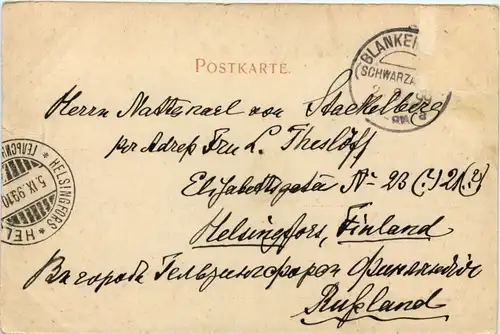 POSTKARTE.
BLANKEN
(SCHWARZA
Herrn Nathanael von Stackelberg
per Adress Fru L. Thesløff
Elisabethsgata No 23 (?) 21 (?)
Helsingfors, Finland
Въ городъ Гельзингфорсъ Финляндіи
Rußland
HELSINGFORS
5.IX.99.10
ГЕЛЬСИН